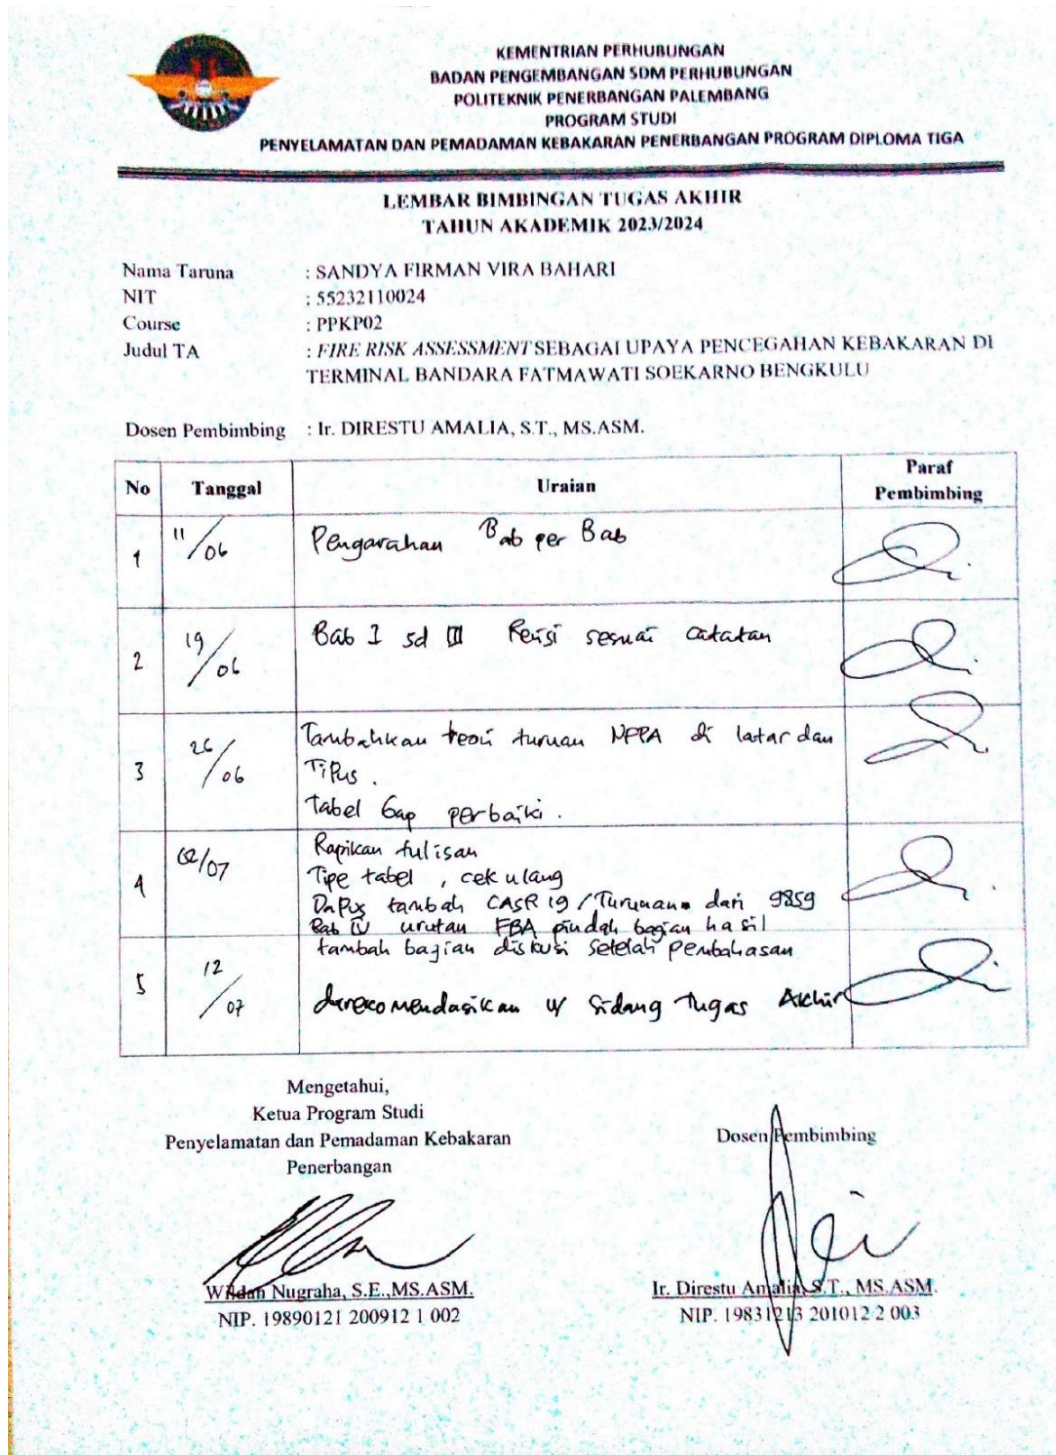 KEMENTRIAN PERHUBUNGAN
BADAN PENGEMBANGAN SDM PERHUBUNGAN
POLITEKNIK PENERBANGAN PALEMBANG
PROGRAM STUDI
PENYELAMATAN DAN PEMADAMAN KEBAKARAN PENERBANGAN PROGRAM DIPLOMA TIGA
LEMBAR BIMBINGAN TUGAS AKHIR
TAHUN AKADEMIK 2023/2024
Nama Taruna : SANDYA FIRMAN VIRA BAHARI
NIT : 55232110024
Course : PPKP02
Judul TA : FIRE RISK ASSESSMENT SEBAGAI UPAYA PENCEGAHAN KEBAKARAN DI
TERMINAL BANDARA FATMAWATI SOEKARNO BENGKULU
Dosen Pembimbing : Ir. DIRESTU AMALIA, S.T., MS.ASM.
No Tanggal Uraian Paraf Pembimbing
1 11/06 Pengarahan Bab per Bab
2 19/06 Bab I sd III Revisi sesuai catatan
3 26/06 Tambahkan teori turunan NFPA di latar dan
TiPus.
Tabel Gap perbaiki.
4 02/07 Rapikan tulisan
Tipe tabel, cek ulang
DaPus tambah CASR 19/Turunan dari 9859
Bab IV urutan FBA pindah bagian hasil
tambah bagian diskusi setelah pembahasan
5 12/07 direkomendasikan u/ Sidang Tugas Akhir
Mengetahui,
Ketua Program Studi
Penyelamatan dan Pemadaman Kebakaran
Penerbangan
Wildan Nugraha, S.E.,MS.ASM.
NIP. 19890121 200912 1 002
Dosen Pembimbing
Ir. Direstu Amalia, S.T., MS.ASM.
NIP. 19831213 201012 2 003